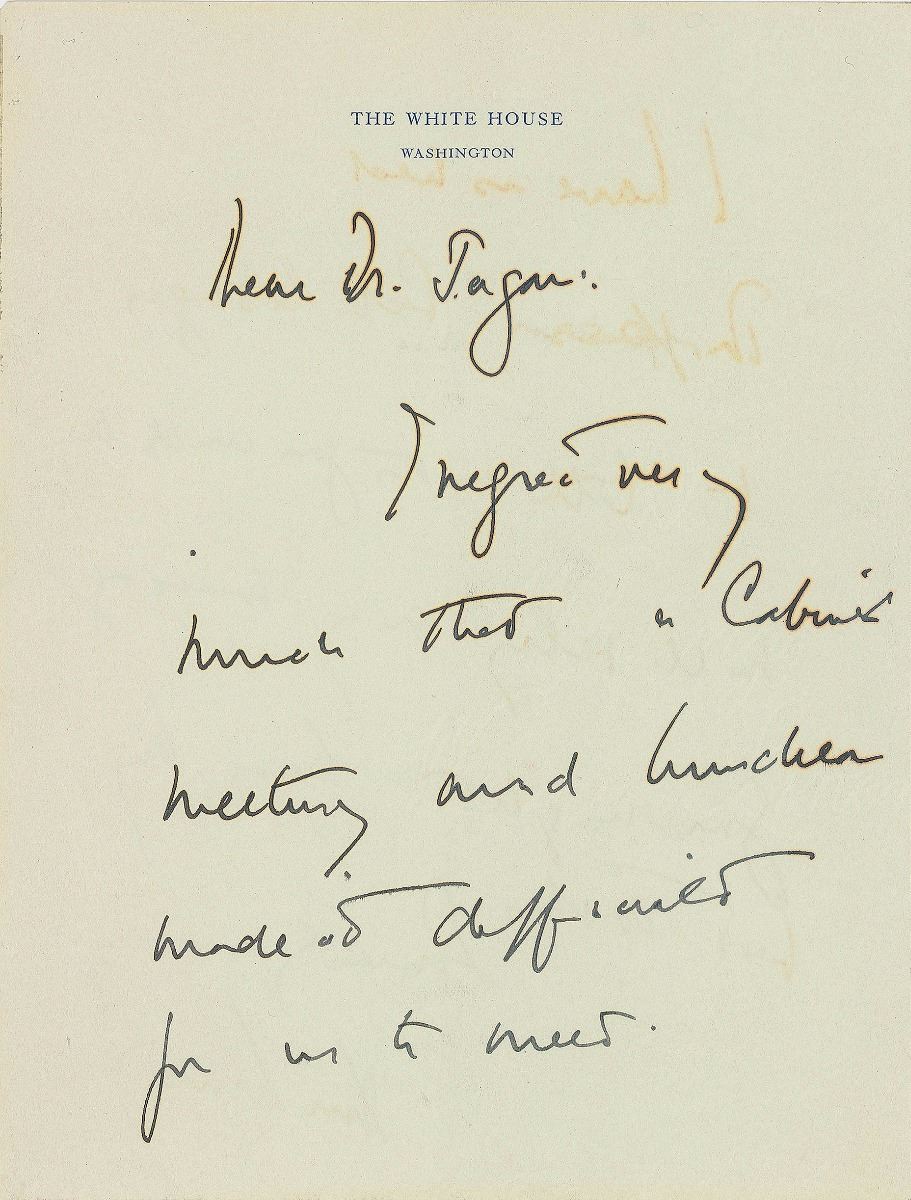 THE WHITE HOUSE
WASHINGTON
Dear Dr. Jagan:
I regret very
much that a Cabinet
meeting and luncheon
made it difficult
for us to meet.